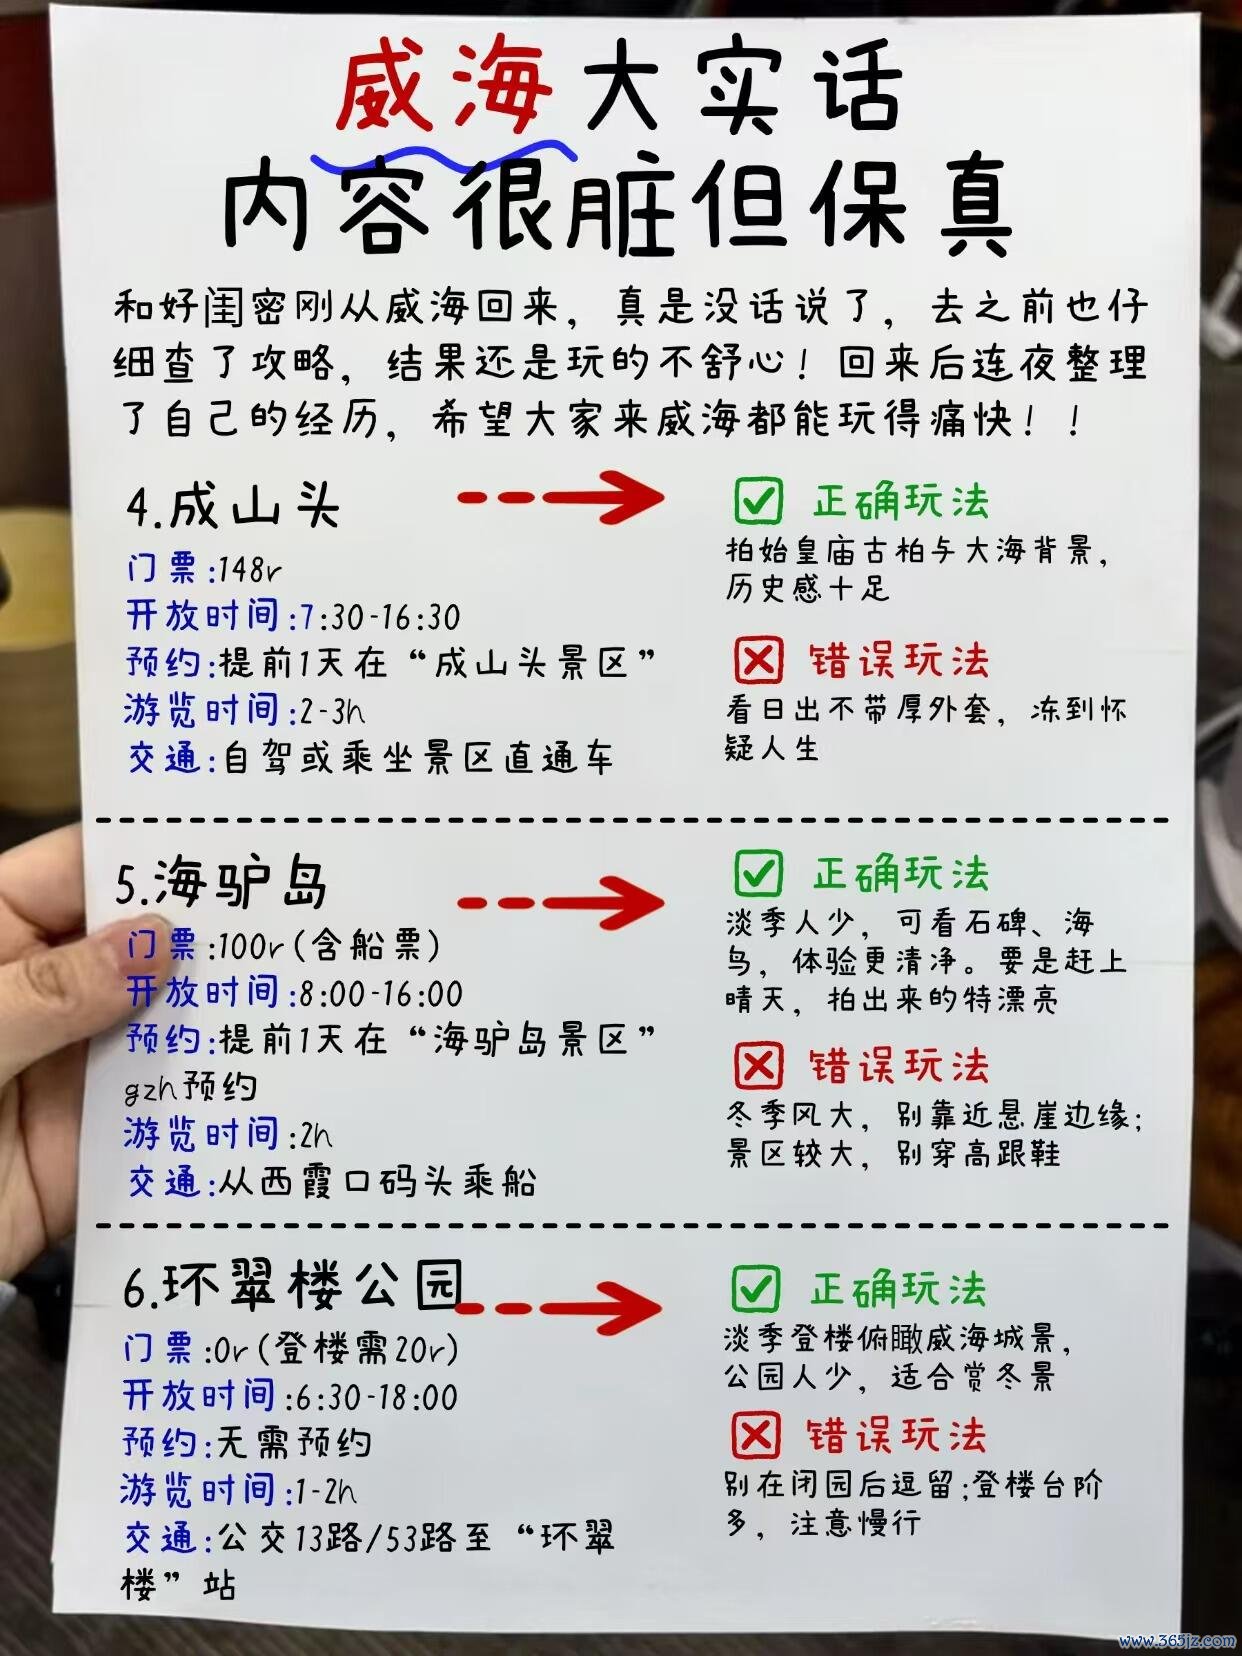 威海大实话
内容很脏但保真
和好闺密刚从威海回来，真是没话说了，去之前也仔
细查了攻略，结果还是玩的不舒心！回来后连夜整理
了自己的经历，希望大家来威海都能玩得痛快！！
4.成山头
门票:148r
开放时间:7:30-16:30
预约:提前1天在“成山头景区”
游览时间:2-3h
交通:自驾或乘坐景区直通车
正确玩法
拍始皇庙古柏与大海背景，
历史感十足
错误玩法
看日出不带厚外套，冻到怀
疑人生
5.海驴岛
门票:100r(含船票)
开放时间:8:00-16:00
预约:提前1天在“海驴岛景区”
gzh预约
游览时间:2h
交通:从西霞口码头乘船
正确玩法
淡季人少，可看石碑、海
鸟，体验更清净。要是赶上
晴天，拍出来的特漂亮
错误玩法
冬季风大，别靠近悬崖边缘;
景区较大，别穿高跟鞋
6.环翠楼公园
门票:0r(登楼需20r)
开放时间:6:30-18:00
预约:无需预约
游览时间:1-2h
交通:公交13路/53路至“环翠
楼”站
正确玩法
淡季登楼俯瞰威海城景，
公园人少，适合赏冬景
错误玩法
别在闭园后逗留;登楼台阶
多，注意慢行
www.365jz.com